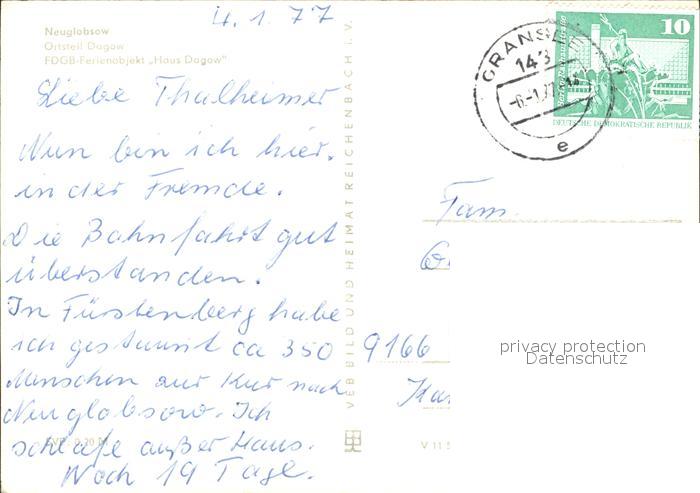 4.1.77
Neuglobsow
Ortsteil Dagow
FDGB-Ferienobjekt „Haus Dagow"
Liebe Thalheimer
Nun bin ich hier.
in der Fremde.
Die Bahnfahrt gut
überstanden.
In Fürstenberg habe
ich gestaunt ca 350
Menschen zur Kur nach
Neuglobsow. Ich
schlafe außer Haus.
Noch 19 Tage.
VEB BILD UND HEIMAT REICHENBACH I. V.
V 11
GRANSEE
143
e
10
DEUTSCHE DEMOKRATISCHE REPUBLIK
Fam.
9166
privacy protection
Datenschutz